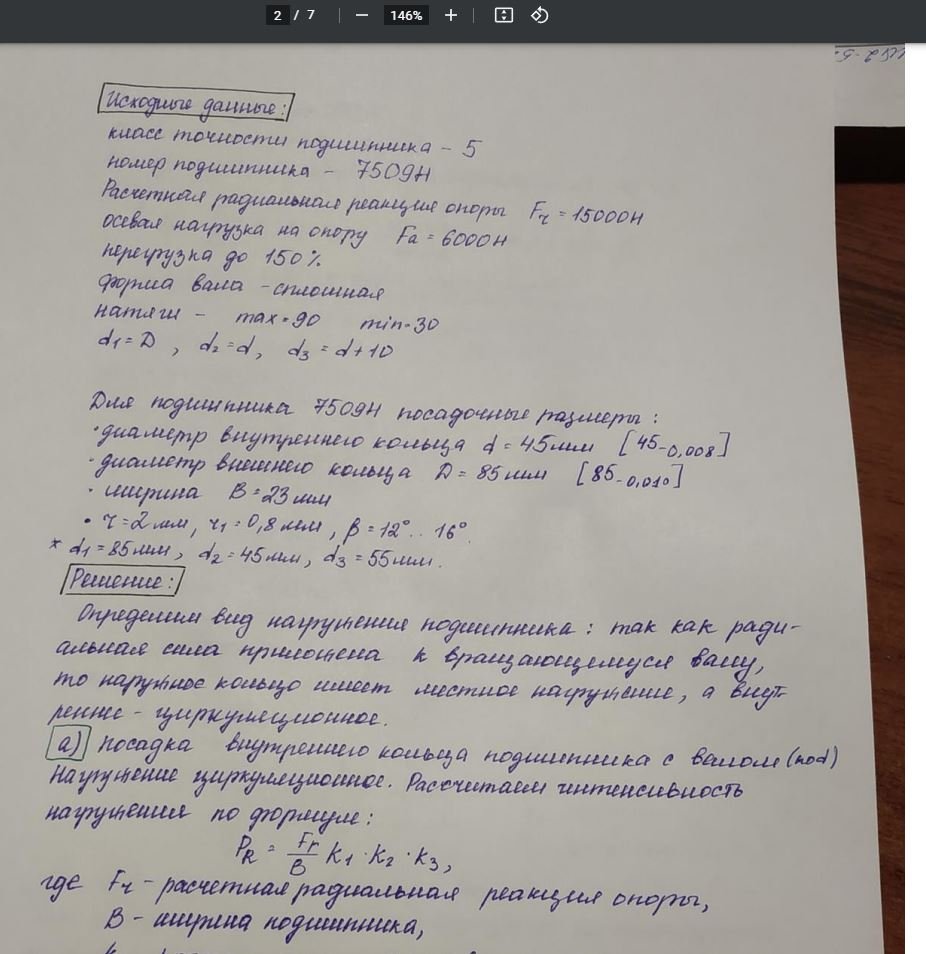 2 / 7 146%
Исходные данные:
класс точности подшипника – 5
номер подшипника – 7509Н
Расчетная радиальная реакция опоры Fr = 15000Н
осевая нагрузка на опору Fa = 6000Н
перегрузка до 150%
форма вала – сплошная
натяги – max=90 min=30
d1=D, d2=d, d3=d+10
Для подшипника 7509Н посадочные размеры:
• диаметр внутреннего кольца d = 45мм [45-0,008]
• диаметр внешнего кольца D = 85мм [85-0,010]
• ширина B = 23мм
• r=2мм, r1=0,8мм, β=12°..16°.
* d1=85мм, d2=45мм, d3=55мм.
Решение:
Определим вид нагружения подшипника: так как ради-
альная сила приложена к вращающемуся валу,
то наружное кольцо имеет местное нагружение, а внут-
ренне – циркуляционное.
а) Посадка внутреннего кольца подшипника с валом (nod)
Нагружение циркуляционное. Рассчитаем интенсивность
нагружения по формуле:
PR = Fr/B K1·K2·K3,
где Fr – расчетная радиальная реакция опоры,
B – ширина подшипника,